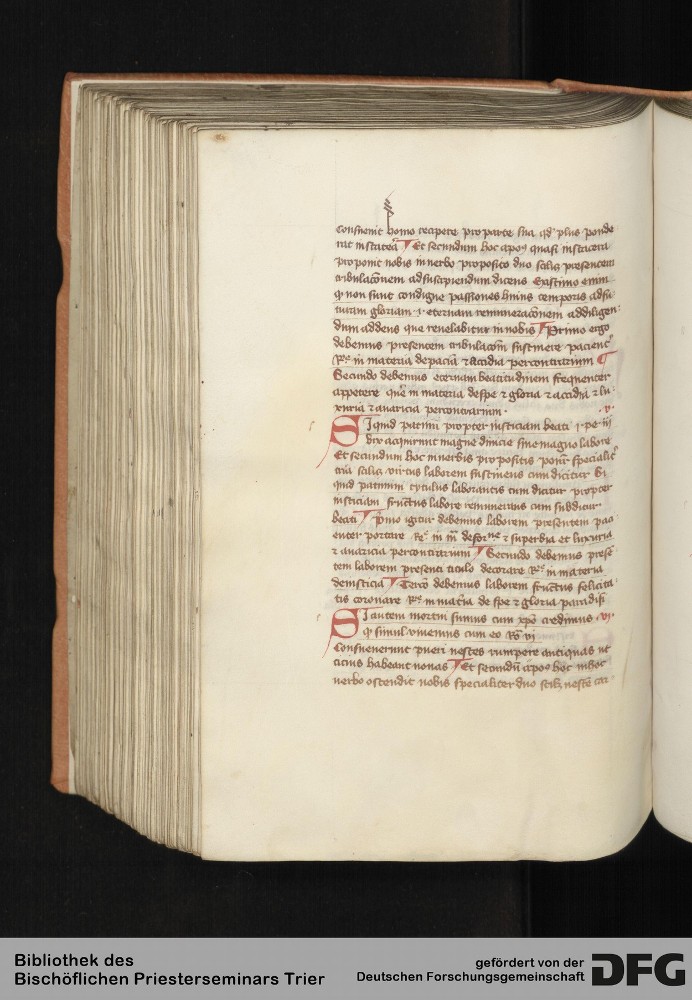 Consueuit homo recipere pro parte sua qd' plus ponde
rat in statera Et secundum hoc apo9 quasi in statera
proponit nobis in verbo proposito duo scilz presentem
tribulacōnem ad suscipiendum dicens Existimo enim
q non sunt condigne passiones huius temporis ad fu
turam gloriam ·i· eternam remuneracōnem ad diligen
dum addens que reuelabitur in nobis Primo ergo
debemus presentem tribulacōm sustinere pacient'
Rc in materia de paciā et accidia per contrarium
Secundo debemus eternam beatitudinem frequenter
appetere quē in materia de spe et gloria et accidia et lu
xuria et auaricia per contrarium · v·
Si quid patimī propter iusticiam beati ·i· pe· iii
vix acquirunt magne diuicie sine magno labore
Et secundum hoc in verbis propositis ponūt specialit'
tria scilz virtus laborem sustinens cum dicitur Si
quid patimini tytulus laborantis cum dicitur propter
iusticiam fructus labore remunerans cum subditur
beati Primo igitur debemus laborem presentem paci
enter portare Rc in mā de fortne et superbia et luxuria
et auaricia per contrarium Secundo debemus presē
tem laborem presenti titulo decorare Rc in materia
de iusticia Tercō debemus laborem fructus felicita
tis coronare Rc in matīa de spe et gloria paradisi
Si autem mortui sumus cum xp̄o credimus ·vi·
q simul viuemus cum eo Rō vi
Consueuerunt pueri vestes rumpere antiquas ut
cicius habeant nouas Et secundū apo9 hoc in hoc
verbo ostendit nobis specialiter duo scilz vestē car
Bibliothek des
Bischöflichen Priesterseminars Trier
gefördert von der
Deutschen Forschungsgemeinschaft
DFG